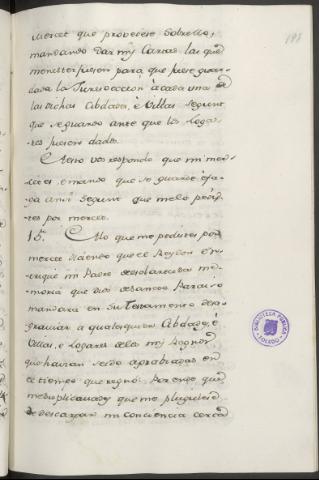 merçet que proveiese sobrello,
mandando dar mis Cartas las que
menester fuesen para que fuese guar-
dada la Jurisdiccion à cada una de
las dichas Cibdades, è Villas segunt
que se guardo ante que los Logares
fuesen dados.
A esto vos respondo que mi mer-
ced es, e mando que se guarde è fa-
ga ansi segunt que me lo pedis-
tes por merced.
15. A lo que me pedistes por
merced diciendo que el Rey Don En-
rique mi Padre de esclarecida me-
moria que Dios dé Santo Paraiso
mandara en su Testamento desa-
graviar à qualesquier Cibdades, è
Villas, e Logares de los mis Regnos
que havian seido agraviadas en
el tiempo que regnó. Por ende que
me suplicavades que me pluguiese
de descargar mi conciencia cerca
195
BIBLIOTECA PUBLICA
TOLEDO